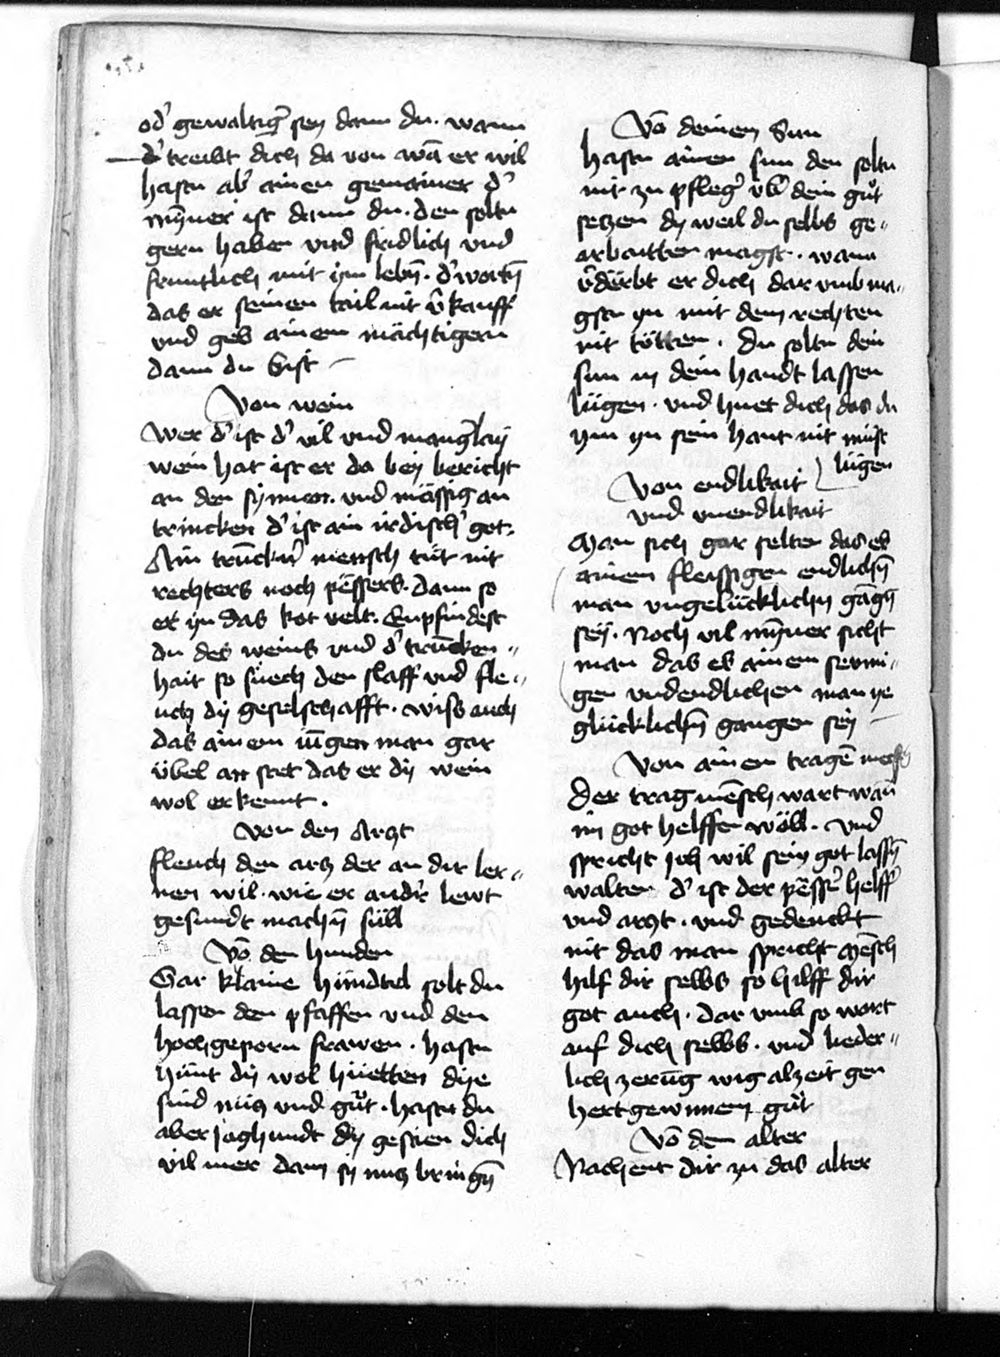 od' gewaltig' sey dann du. wann
d' treibt dich da von wā er wil
hastu ab' ainen gemainer d'
myn̄er ist dann du. den soltu
gern haben und fridlich und
fruntlich mit im lebn̄. d' wortn̄
das er seinen tail nit v̄kauff
und geb ainem mächtigern
dann du bist
Von wein
Wer d' ist d' vil und manglay
wein hat ist er da bey bericht
an den synnen. und mässig an
trincken d' ist ain irdisch' got.
Ain trūckn' mensch tůt nit
rechters noch pessers. dann so
er yn das kot velt. Enpfindest
du des weins und d' trūcken„
hait so suech den slaff und fle„
uch dy geselschafft. wiss auch
das ainem iūgen man gar
übel an stet das er dy wein
wol erkennt.
Von den Arczt
fleuch den arcz der an dir ler„
nen wil. wie er andr lewt
gesundt machn̄ süll
Vō den hunden
Gar klaine hündtel solt du
lassen den pfaffen und den
hochgeporn frawen. hastu
hunt dy wol hüetten dye
sind nücz und gůt. hastu du
aber jaghundt dy gestien dich
vil mer dann sy nucz bringn̄
Vō deinen Sun
hastu ainen sun den soltu
nit zu pfleg' vb' dein gůt
seczen dy weil du selbs ge„
arbaitten magst. wann
v̄derbt er dich dar umb ma„
gstu yn mit dem rechten
nit tötten. du solt dein
sun in dein handt lassen
lůgen. und huet dich das du
ym yn sein hant nit müst
lůgen
Von endlikait
und unendlikait
Man sich gar selten das es
ainen fleissigen endlichn̄
man ungelücklichn gāgn̄
sey. Noch vil myn̄er sicht
man das es ainem sewmi„
gen undendlichen man ye
glücklichn̄ gangen sey
Von ainen tragē
Der trag mēsch wart wan̄
im got helffen wöll. und
spricht Ich wil sein got lassn̄
walten d' ist der pesser helff'
und arczt. und gedenckt
nit das man spricht mēsch
hilf dir selbs so hilff dir
got auch. dar umb so wart
auf dich selbs. und lieder„
lich zerūg wig alzeit gen
hertgewinnen gůt
Vō dem alter
Nachent dir zu das alter